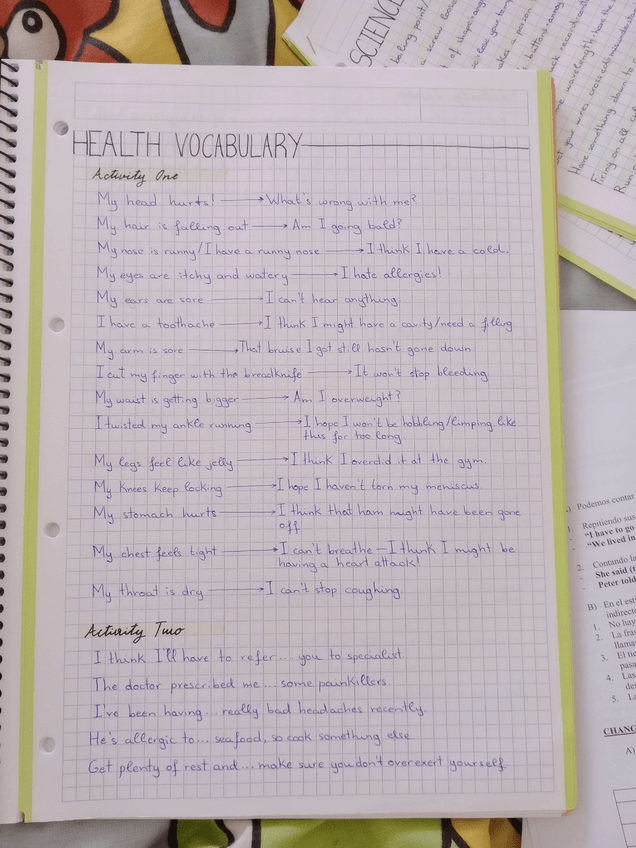 HEALTH VOCABULARY
Activity One
My head hurts! → What's wrong with me?
My hair is falling out → Am I going bald?
My nose is runny/I have a runny nose → I think I have a cold.
My eyes are itchy and watery → I hate allergies!
My ears are sore → I can't hear anything
I have a toothache → I think I might have a cavity/need a fillug.
My arm is sore → That bruise I got still hasn't gone down.
I cut my finger with the breadknife → It won't stop bleeding
My waist is getting bigger → Am I overweight?
I twisted my ankle running → I hope I won't be hobbling/limping like
this for too long.
My legs feel like jelly → I think I overdid it at the gym.
My knees keep locking → I hope I haven't torn my meniscus
My stomach hurts → I think that ham might have been gone
off
My chest feels tight → I can't breathe – I think I might be
having a heart attack!
My throat is dry → I can't stop coughing.
Activity Two
I think I'll have to refer... you to specialist.
The doctor prescribed me ... some painkillers.
I've been having... really bad headaches recently.
He's allergic to... seafood, so cook something else
Get plenty of rest and... make sure you don't overexert yourself.
SCIENCE
boiling point/
a screw loose
Have something down to
Firing on all
Podemos contar
1. Repitiendo sus
- "I have to go
- "We lived in
2. Contando la
- She said (t
- Peter told
B) En el est
indirecto
1. No hay
2. La fra
llamas
3. El tie
pasa
4. Las
de
5. La
CHANG
A)